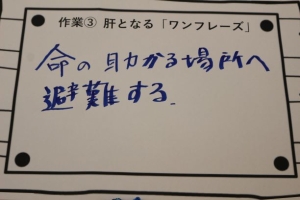 作業③ 肝となる「ワンフレーズ」
命の助かる場所へ
避難する.